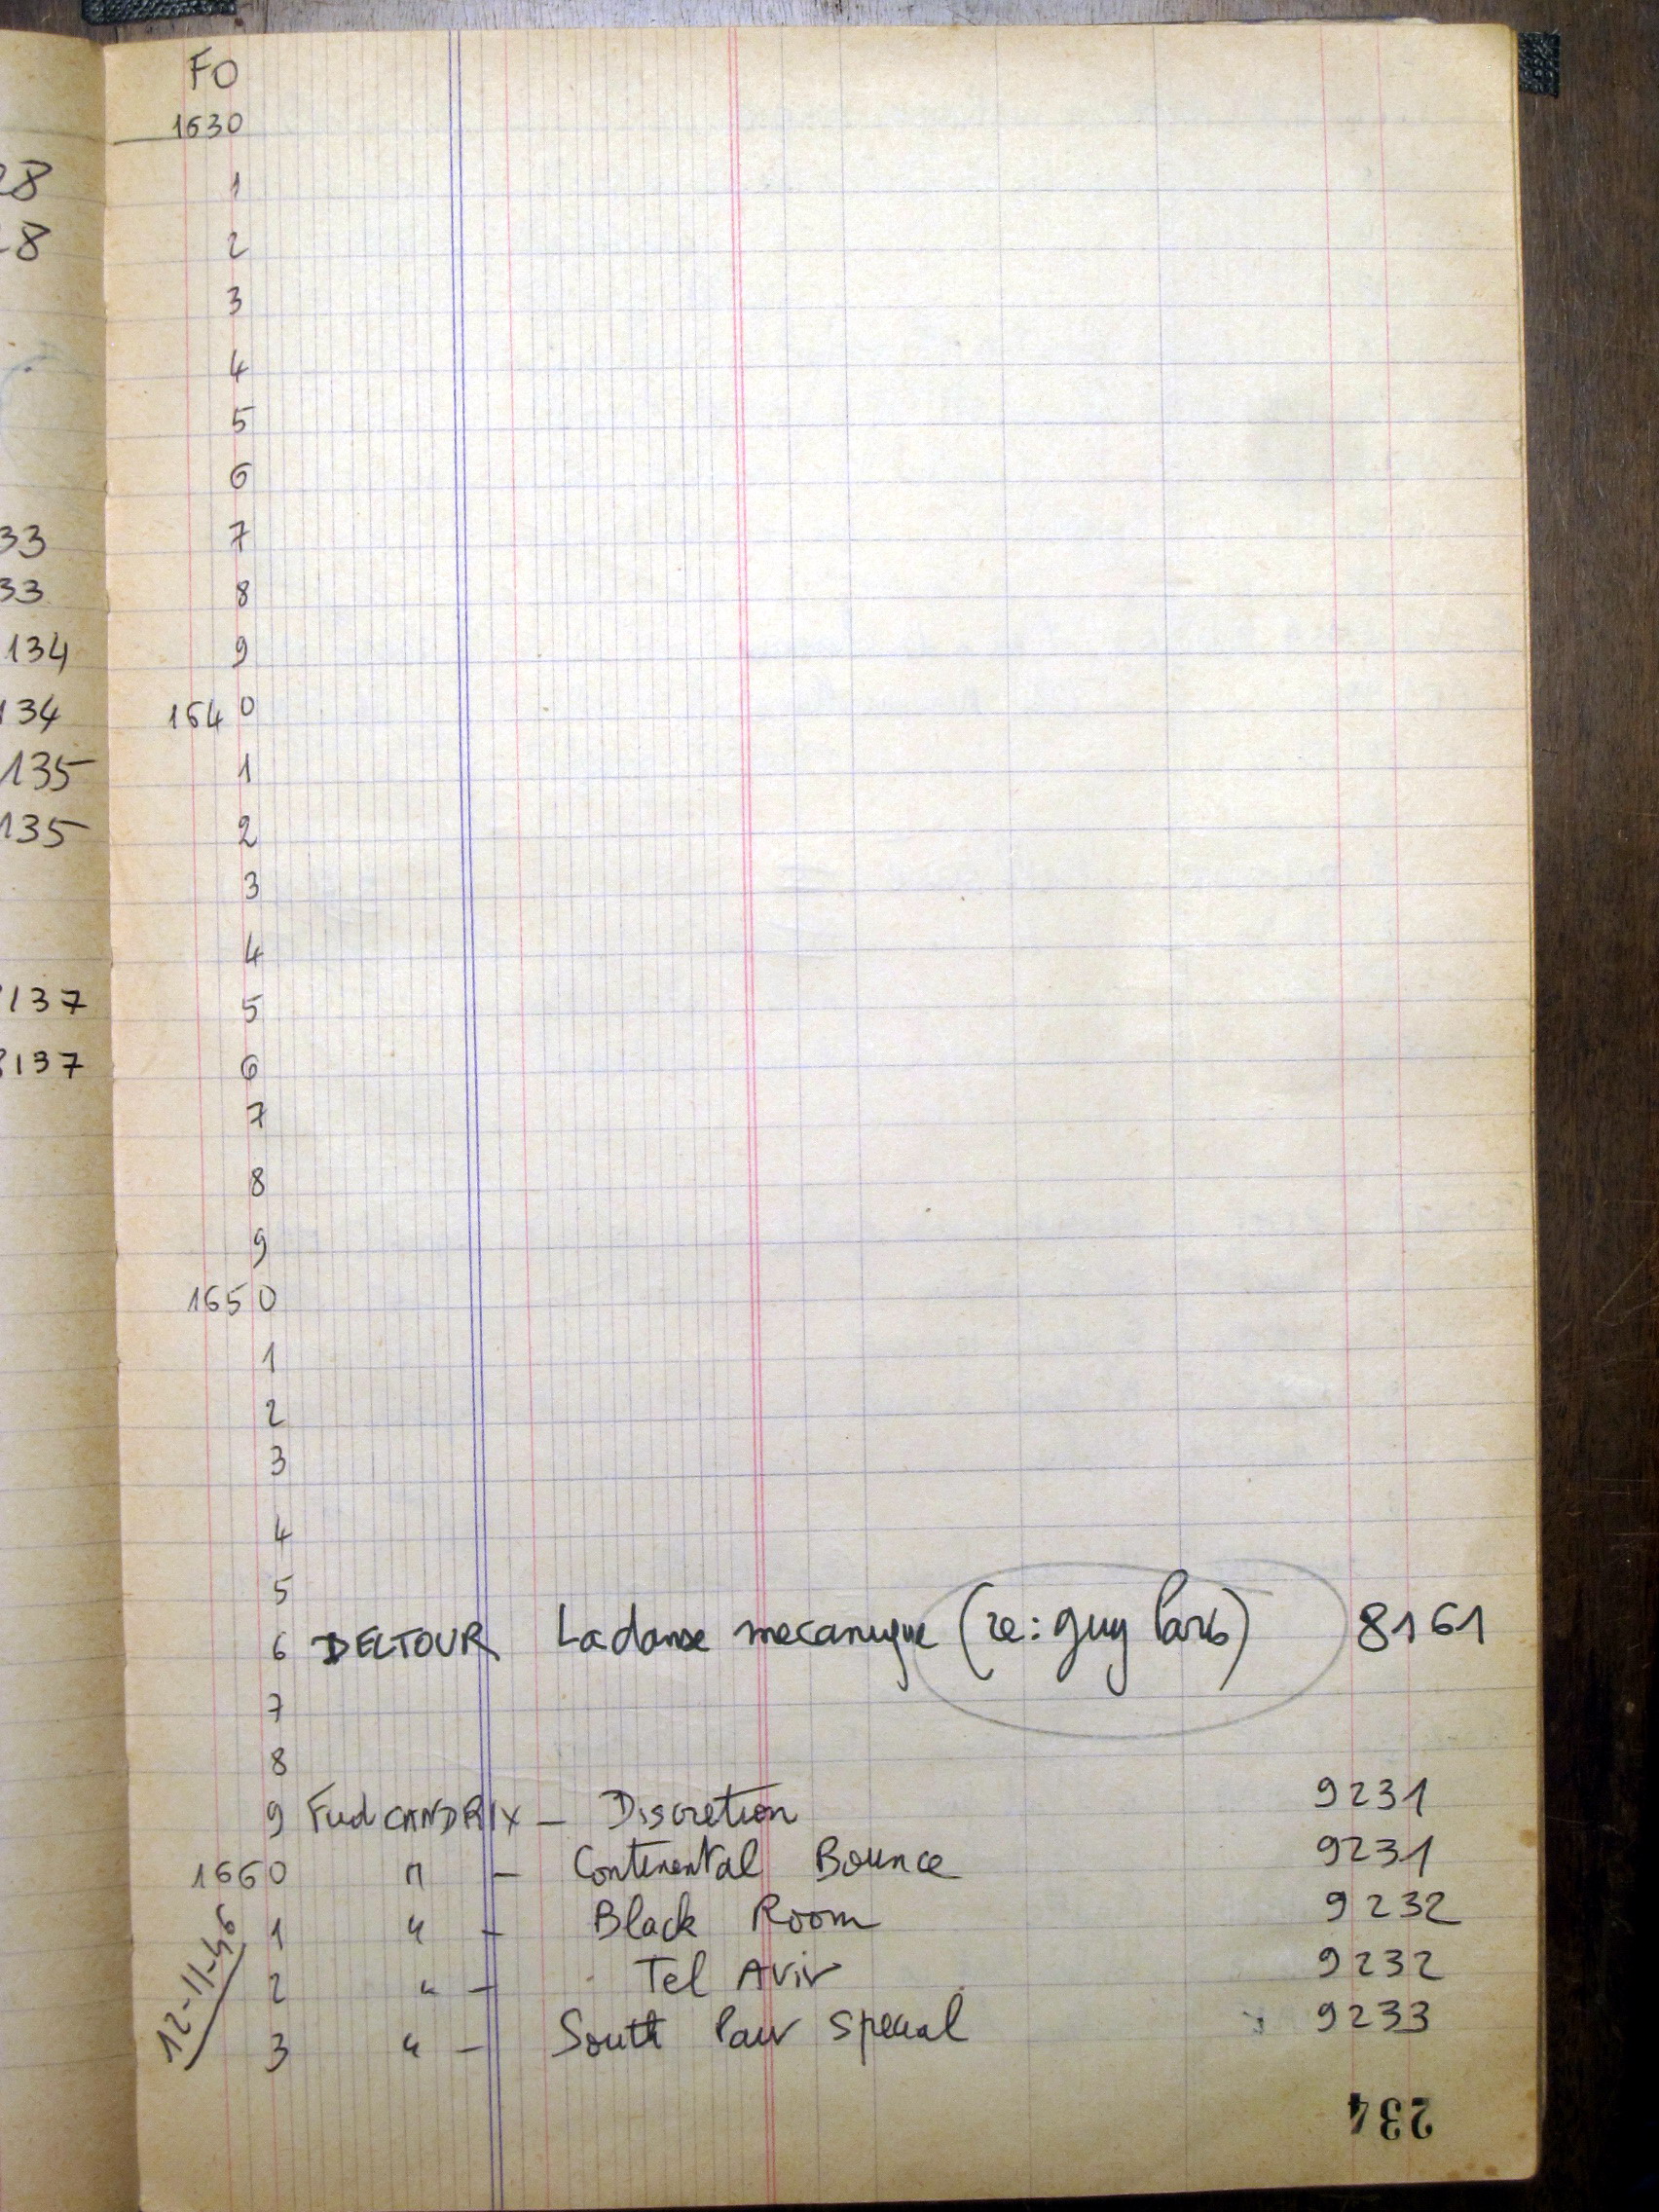 FO
1630
28
1
28
2
3
4
5
6
33
7
33
8
134
9
134
1640
135
1
135
2
3
4
137
5
8137
6
7
8
9
1650
1
2
3
4
5
6 DELTOUR La danse mecanique (re: guy Paris) 8161
7
8
9 Fud CANDRIX – Discretion 9231
1660 " – Continental Bounce 9231
1 " – Black Room 9232
2 " – Tel Aviv 9232
12-11-46
3 " – South Paw Special 9233
234